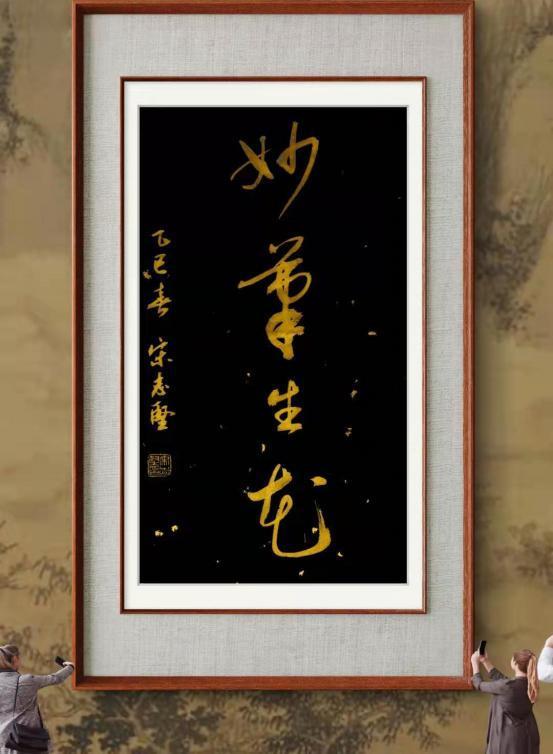 妙筆生花
乙巳春 宋志堅